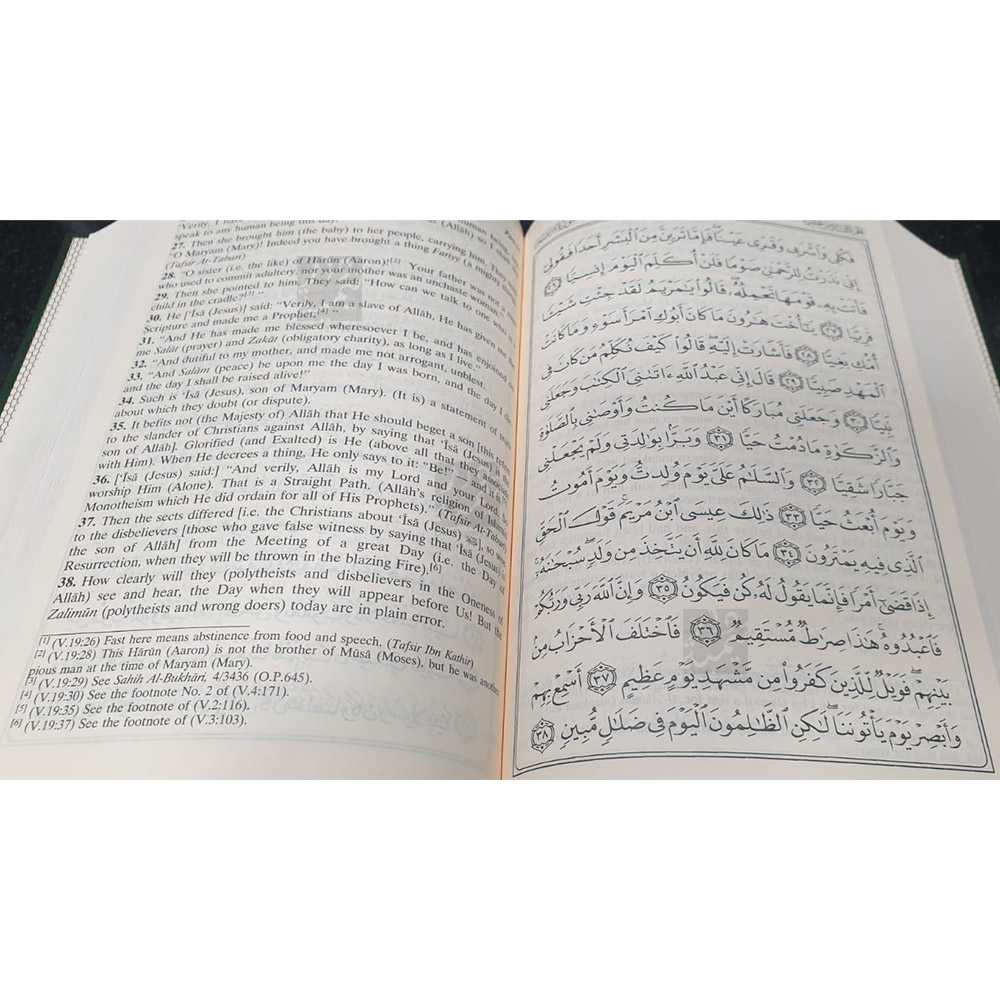 "Verily, I have
speak to any human being this day.'"
27. Then she brought him (the baby) to her people, carrying him. They
"O Maryam (Mary)! Indeed you have brought a thing Fariyy (a mighty
(Tafsir At-Tabari)
28. "O sister (i.e. the like) of Hârûn (Aaron)![2] Your father was not a
who used to commit adultery, nor your mother was an unchaste woman."
29. Then she pointed to him. They said: "How can we talk to one who is
child in the cradle?[3]"
30. He ['Îsâ (Jesus)] said: "Verily, I am a slave of Allâh, He has given me the
Scripture and made me a Prophet;[4]
31. "And He has made me blessed wheresoever I be, and has enjoined on
me Salât (prayer) and Zakât (obligatory charity), as long as I live."
32. "And dutiful to my mother, and made me not arrogant, unblest.
33. "And Salâm (peace) be upon me the day I was born, and the day I die,
and the day I shall be raised alive!"
34. Such is 'Îsâ (Jesus), son of Maryam (Mary). (It is) a statement of truth,
about which they doubt (or dispute).
35. It befits not (the Majesty of) Allâh that He should beget a son [this refers
to the slander of Christians against Allâh, by saying that 'Îsâ (Jesus) is the
son of Allâh]. Glorified (and Exalted) is He (above all that they associate
with Him). When He decrees a thing, He only says to it: "Be!" — and it is.
36. ['Îsâ (Jesus) said:] "And verily, Allâh is my Lord and your Lord. So
worship Him (Alone). That is a Straight Path. (Allâh's religion of Islamic
Monotheism which He did ordain for all of His Prophets)." (Tafsir At-Tabari)
37. Then the sects differed [i.e. the Christians about 'Îsâ (Jesus) ], so woe
to the disbelievers [those who gave false witness by saying that 'Îsâ (Jesus) is
the son of Allâh] from the Meeting of a great Day (i.e. the Day of
Resurrection, when they will be thrown in the blazing Fire).[6]
38. How clearly will they (polytheists and disbelievers in the Oneness of
Allâh) see and hear, the Day when they will appear before Us! But the
Zalimûn (polytheists and wrong doers) today are in plain error.
[1] (V.19:26) Fast here means abstinence from food and speech, (Tafsir Ibn Kathir)
[2] (V.19:28) This Hârûn (Aaron) is not the brother of Mûsâ (Moses), but he was another
pious man at the time of Maryam (Mary).
[3] (V.19:29) See Sahih Al-Bukhâri, 4/3436 (O.P.645).
[4] (V.19:30) See the footnote No. 2 of (V.4:171).
[5] (V.19:35) See the footnote of (V.2:116).
[6] (V.19:37) See the footnote of (V.3:103).
فَكُلِى وَٱشْرَبِى وَقَرِّى عَيْنًا فَإِمَّا تَرَيِنَّ مِنَ ٱلْبَشَرِ أَحَدًا فَقُولِىٓ
إِنِّى نَذَرْتُ لِلرَّحْمَٰنِ صَوْمًا فَلَنْ أُكَلِّمَ ٱلْيَوْمَ إِنسِيًّا ٢٦
فَأَتَتْ بِهِۦ قَوْمَهَا تَحْمِلُهُۥ قَالُوا۟ يَٰمَرْيَمُ لَقَدْ جِئْتِ شَيْـًٔا
فَرِيًّا ٢٧ يَٰٓأُخْتَ هَٰرُونَ مَا كَانَ أَبُوكِ ٱمْرَأَ سَوْءٍ وَمَا كَانَتْ
أُمُّكِ بَغِيًّا ٢٨ فَأَشَارَتْ إِلَيْهِ قَالُوا۟ كَيْفَ نُكَلِّمُ مَن كَانَ فِى
ٱلْمَهْدِ صَبِيًّا ٢٩ قَالَ إِنِّى عَبْدُ ٱللَّهِ ءَاتَىٰنِىَ ٱلْكِتَٰبَ وَجَعَلَنِى
نَبِيًّا ٣٠ وَجَعَلَنِى مُبَارَكًا أَيْنَ مَا كُنتُ وَأَوْصَٰنِى بِٱلصَّلَوٰةِ
وَٱلزَّكَوٰةِ مَا دُمْتُ حَيًّا ٣١ وَبَرًّۢا بِوَٰلِدَتِى وَلَمْ يَجْعَلْنِى
جَبَّارًا شَقِيًّا ٣٢ وَٱلسَّلَٰمُ عَلَىَّ يَوْمَ وُلِدتُّ وَيَوْمَ أَمُوتُ
وَيَوْمَ أُبْعَثُ حَيًّا ٣٣ ذَٰلِكَ عِيسَى ٱبْنُ مَرْيَمَ قَوْلَ ٱلْحَقِّ
ٱلَّذِى فِيهِ يَمْتَرُونَ ٣٤ مَا كَانَ لِلَّهِ أَن يَتَّخِذَ مِن وَلَدٍ سُبْحَٰنَهُۥٓ
إِذَا قَضَىٰٓ أَمْرًا فَإِنَّمَا يَقُولُ لَهُۥ كُن فَيَكُونُ ٣٥ وَإِنَّ ٱللَّهَ رَبِّى وَرَبُّكُمْ
فَٱعْبُدُوهُ هَٰذَا صِرَٰطٌ مُّسْتَقِيمٌ ٣٦ فَٱخْتَلَفَ ٱلْأَحْزَابُ مِنۢ
بَيْنِهِمْ فَوَيْلٌ لِّلَّذِينَ كَفَرُوا۟ مِن مَّشْهَدِ يَوْمٍ عَظِيمٍ ٣٧ أَسْمِعْ بِهِمْ
وَأَبْصِرْ يَوْمَ يَأْتُونَنَا لَٰكِنِ ٱلظَّٰلِمُونَ ٱلْيَوْمَ فِى ضَلَٰلٍ مُّبِينٍ ٣٨